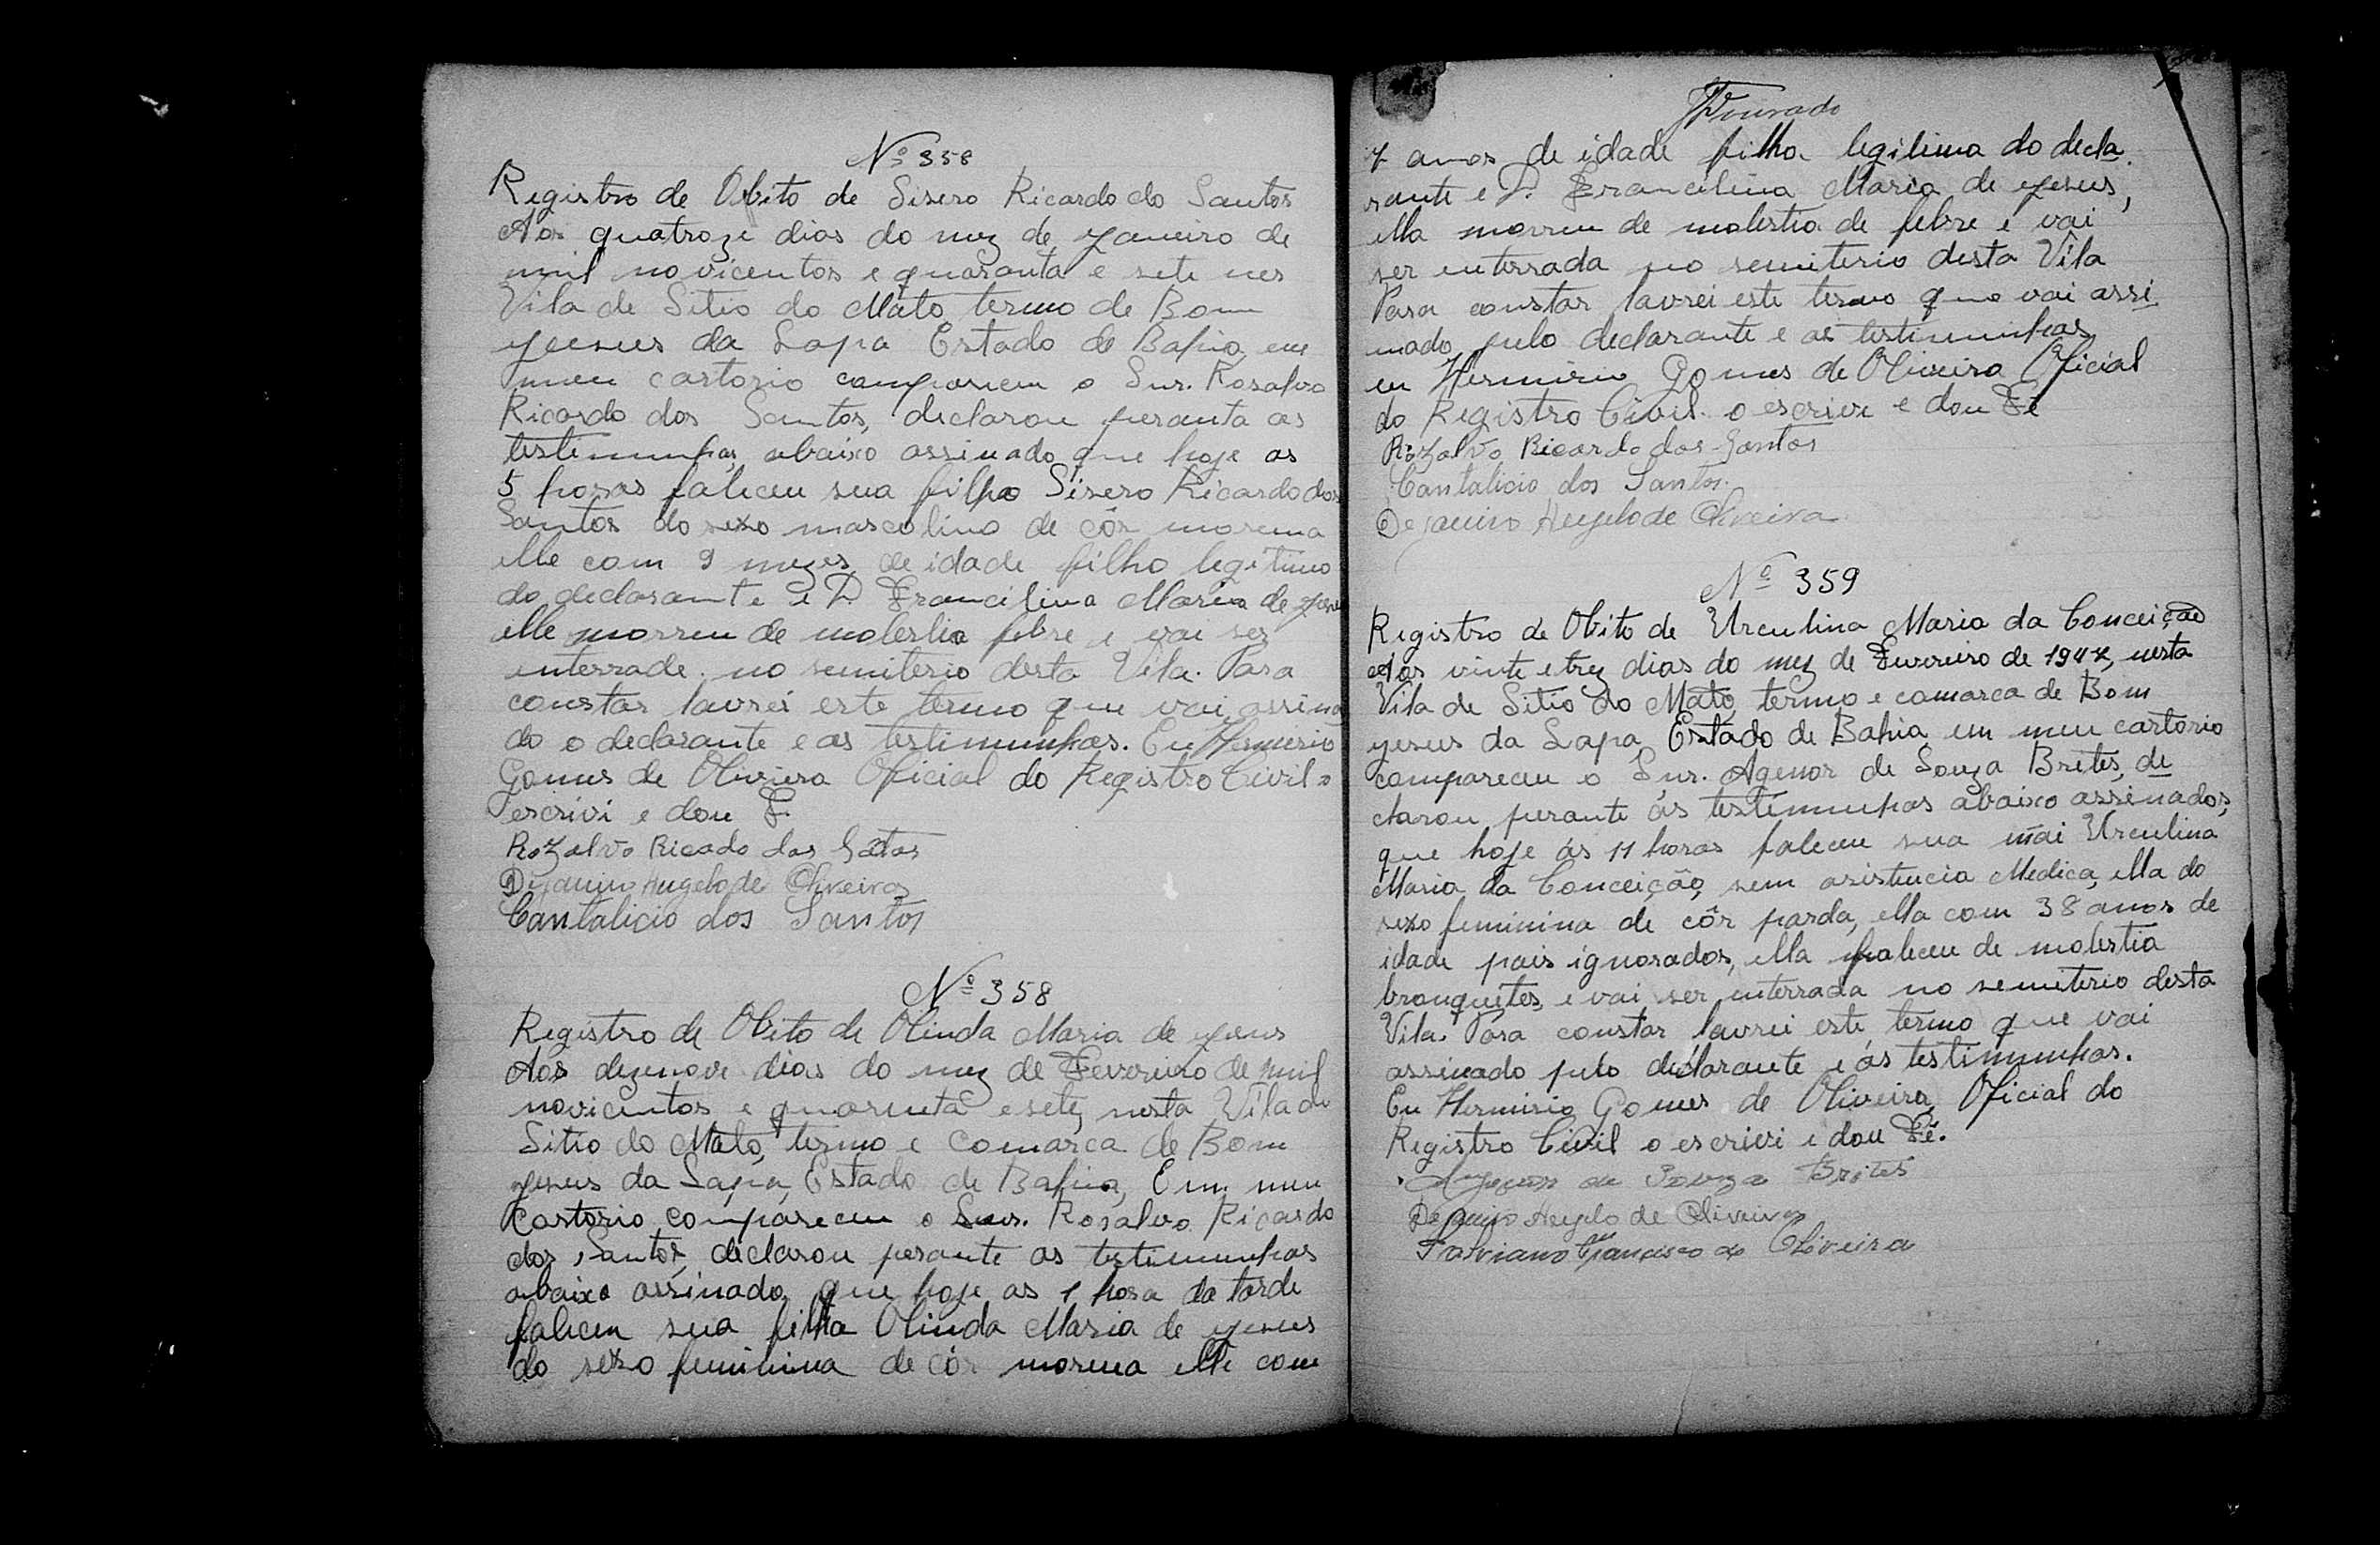 Nº 358
Registro de Obito de Sisero Ricardo do Santos
Aos quatroze dias do mez de Janeiro de
mil novicentos e quaranta e sete nes
Vila de Sitio do Mato termo de Bom
Jeesus da Lapa Estado de Bahia em
meu cartorio compareceu o Snr. Rosalvo
Ricardo dos Santos, declarou peranta as
testimunhas abaixo assinado que hoje as
5 horas faleceu sua filho Sisero Ricardo dos
Santos do sexo mascolino de côr morena
elle com 9 mezes de idade filho legitimo
do declarante e D. Francilina Maria de Jesus
elle morreu de molestia febre e vai ser
enterrade no semiterio desta Vila. Para
constar lavrei este termo que vai assina
do o declarante e as testimunhas. Eu Hermirio
Gomes de Oliviera Oficial do Registro Civil o
escrivi e dou F.
Rozalvo Ricado dos Satos
Dejanino Angelo de Oliveira
Cantalicio dos Santos
Nº 358
Registro de Obito de Olinda Maria de Jesus
Aos dezenove dias do mez de Fevereiro de mil
novicentos e quarenta e sete, nesta Vila de
Sitio do Mato, termo e Comarca de Bom
Jesus da Lapa, Estado de Bahia, Em meu
Cartorio compareceu o Snr. Rosalvo Ricardo
dos Santos, declarou perante as testimunhas
abaixo assinado, que hoje as 1 hora da tarde
faleceu sua filha Olinda Maria de Jesus
do sexo feminina de côr morena elle com
Dourado
7 anos de idade filha legitima do decla
rante e D. Francilina Maria de Jesus,
ella morreu de molestia de febre e vai
ser enterrada no semiterio desta Vila
Para constar lavrei este termo que vai assi
nado pelo declarante e as testimunhas
eu Hermirio Gomes de Oliveira Oficial
do Registro Civil. o escrivi e dou Fé
Rozalvo Ricardo dos Santos
Cantalicio dos Santos.
Dejanino Angelo de Oliveira
Nº 359
Registro de Obito de Urculina Maria da Conceição
Aos vinte e trez dias do mez de Fevereiro de 1947, nesta
Vila de Sitio do Mato, termo e comarca de Bom
Jesus da Lapa, Estado de Bahia em meu cartorio
compareceu o Snr. Agenor de Souza Brites, de
clarou perante ás testimunhas abaixo assinados,
que hoje ás 11 horas faleceu sua mãi Urculina
Maria da Conceição, sem asistencia Medica, ella do
sexo feminina de côr parda, ella com 38 anos de
idade pais ignorados, ella faleceu de molestia
bronquites, e vai ser enterrada no semiterio desta
Vila. Para constar lavrei este termo que vai
assinado pelo declarante e ás testimunhas.
Eu Hermirio Gomes de Oliveira, Oficial do
Registro Civil o escrivi e dou Fé.
Agenor de Souza Brites
Dejanino Angelo de Oliveira
Salviano Francisco de Oliveira